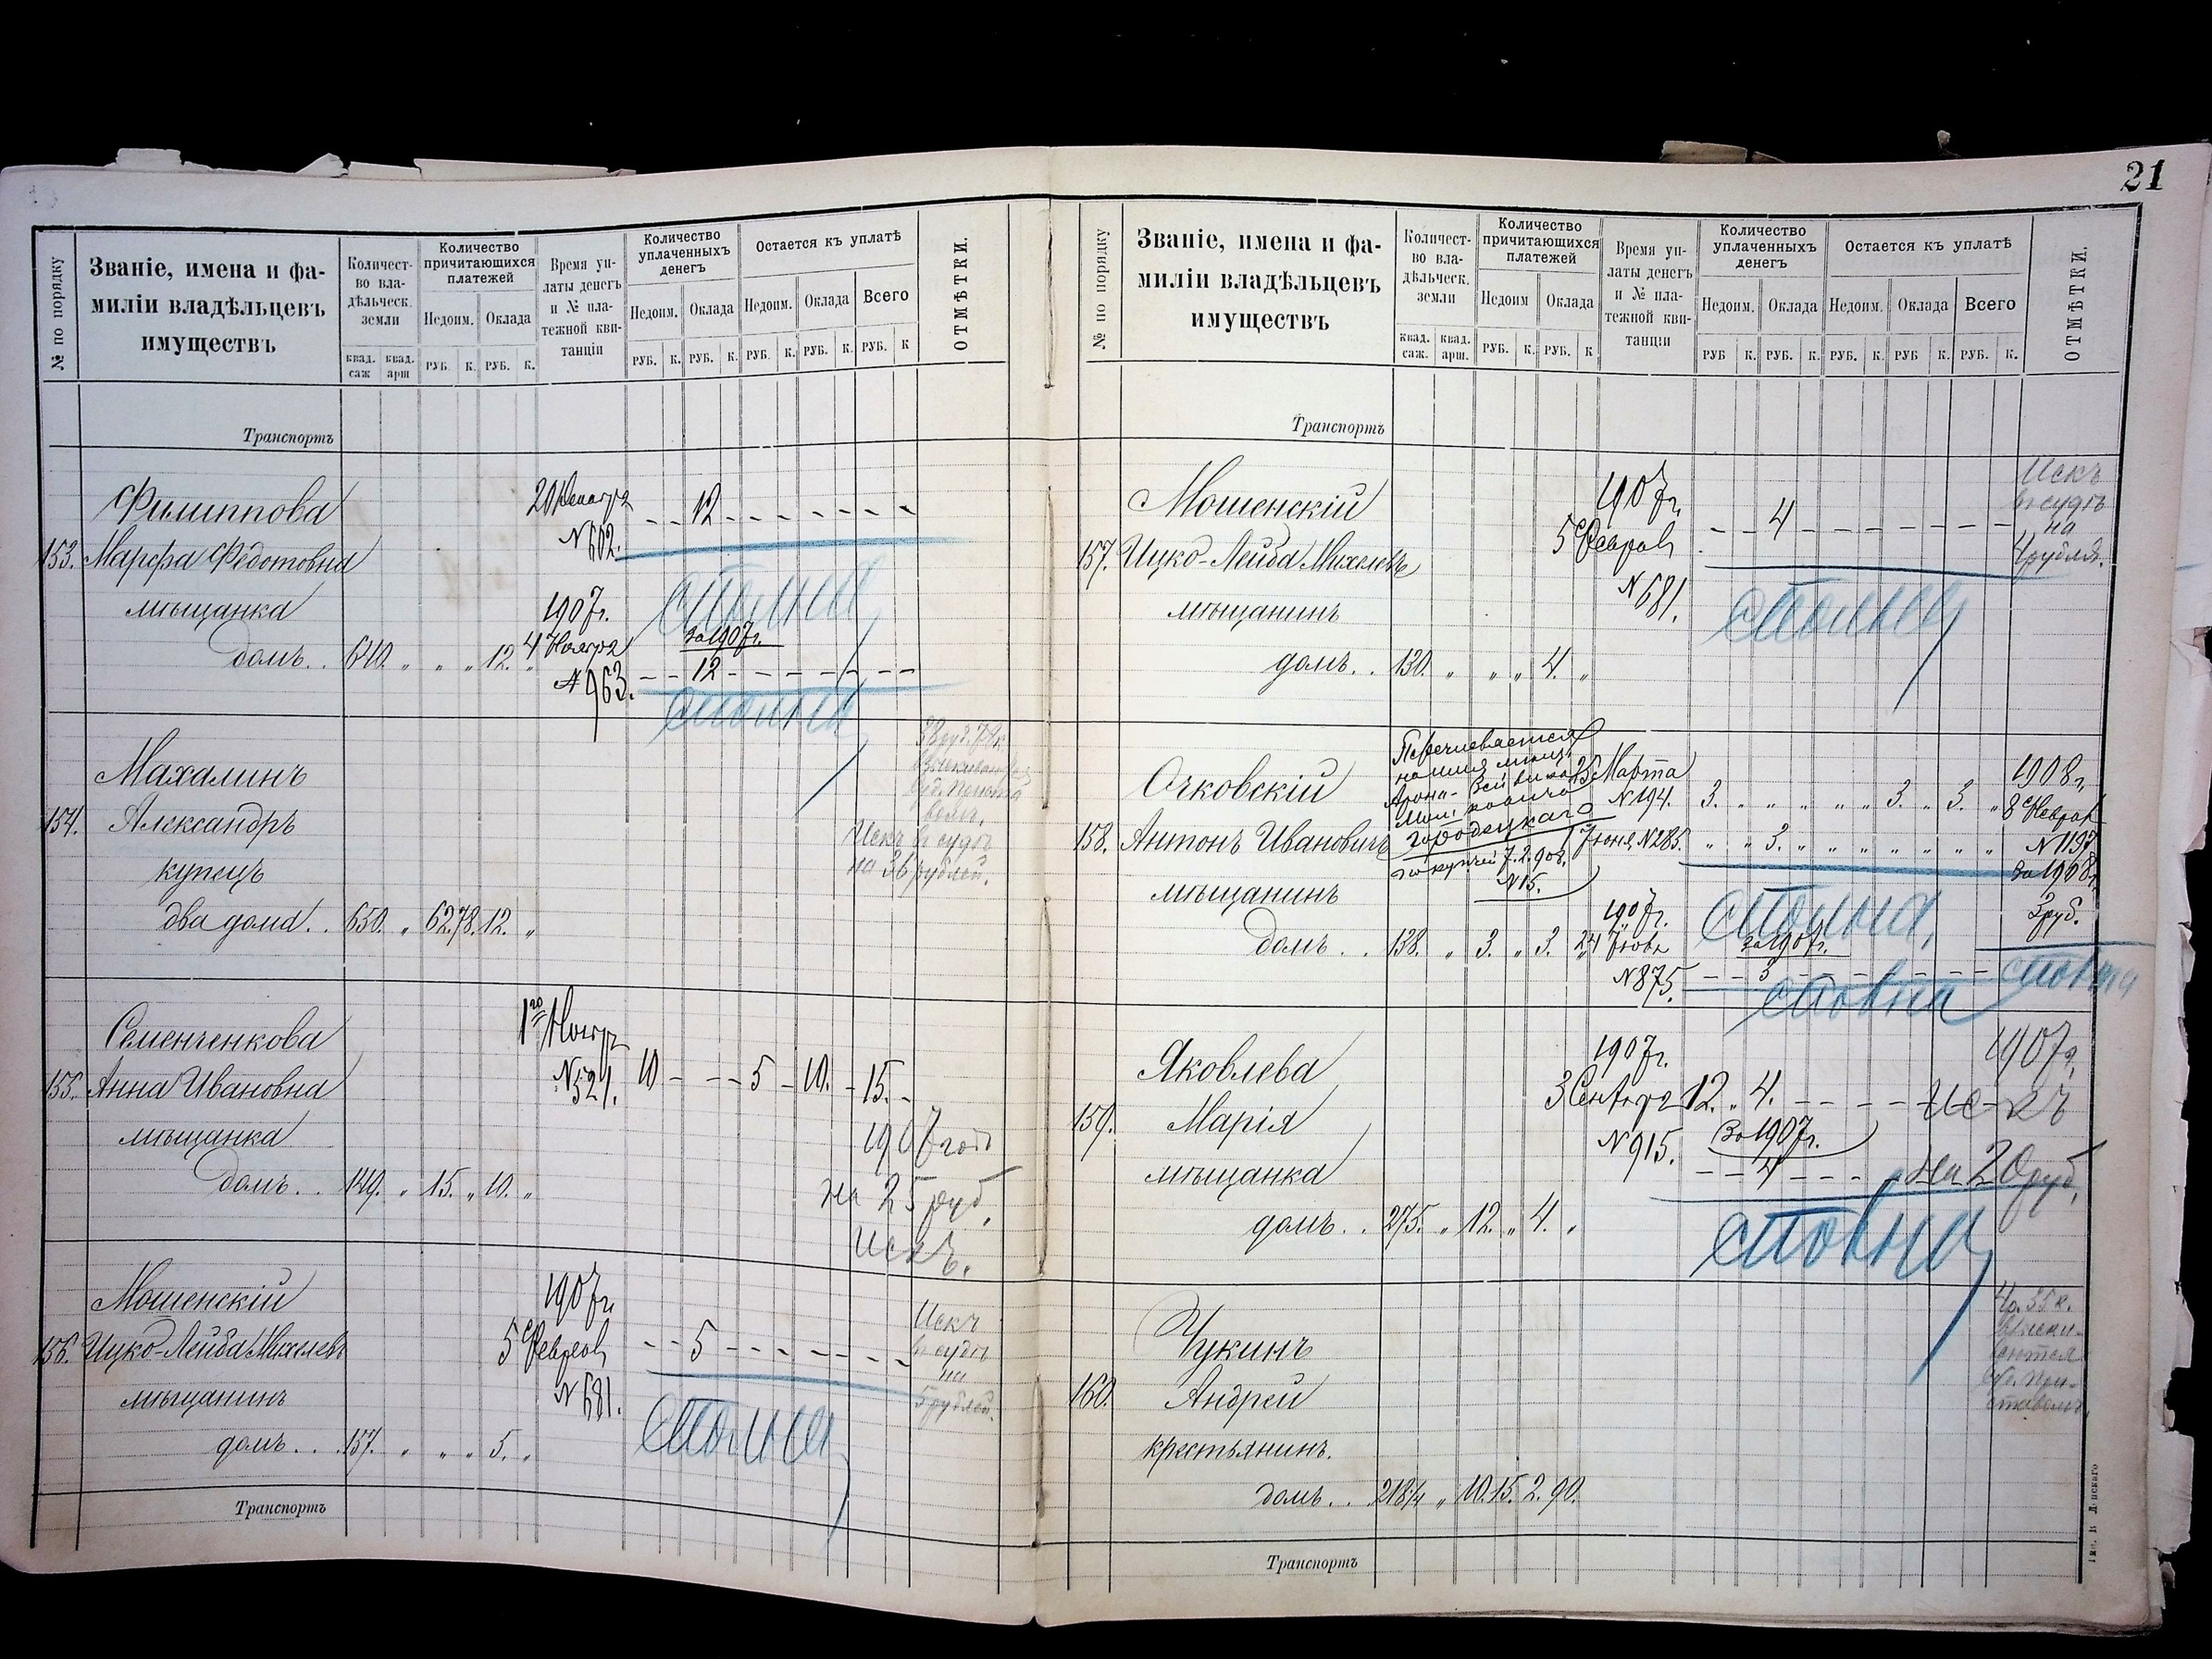 21
№ по порядку
Званіе, имена и фа-
миліи владѣльцевъ
имуществъ
Количест-
во вла-
дѣльческ.
земли
квад. саж
квад. арш
Количество
причитающихся
платежей
Недоим.
Оклада
РУБ. К. РУБ. К.
Время уп-
латы денегъ
и № пла-
тежной кви-
танціи
Количество
уплаченныхъ
денегъ
Недоим.
Оклада
РУБ. К. РУБ. К.
Остается къ уплатѣ
Недоим.
Оклада
Всего
РУБ. К. РУБ. К. РУБ. К
ОТМѢТКИ.
Транспортъ
Филиппова
153. Марфа Федотовна
мѣщанка
домъ . . 640. „ „ „ 12. „
20 Декабря
№ 602.
12
1907 г.
4 Ноября
№ 963.
за 1907 г.
12
Махалинъ
154. Александръ
купецъ
два дома . . 650. „ 62.78. 12. „
Искъ въ судѣ
на 36 рублей.
Семенченкова
155. Анна Ивановна
мѣщанка
домъ . . 149. „ 15. „ 10. „
1го Ноябр
№ 521.
10 - - - 5 - 10. - 15. -
1907 годъ
на 25 руб.
Искъ.
Мошенскій
156. Ицко-Лейба Михелевъ
мѣщанинъ
домъ . . . 157. „ „ „ 5. „
1907 г.
5 Феврал
№ 681.
5
Искъ
въ судѣ
на
5 рублей.
Транспортъ
№ по порядку
Званіе, имена и фа-
миліи владѣльцевъ
имуществъ
Количест-
во вла-
дѣльческ.
земли
квад. саж.
квад. арш.
Количество
причитающихся
платежей
Недоим
Оклада
РУБ. К. РУБ. К
Время уп-
латы денегъ
и № пла-
тежной кви-
танціи
Количество
уплаченныхъ
денегъ
Недоим.
Оклада
РУБ К. РУБ. К.
Остается къ уплатѣ
Недоим.
Оклада
Всего
РУБ. К. РУБ К. РУБ. К.
ОТМѢТКИ.
Транспортъ
Мошенскій
157. Ицко-Лейба Михелевъ
мѣщанинъ
домъ . . 130. „ „ „ 4. „
1907 г.
5 Феврал
№ 681.
4
Искъ
въ судѣ
на
4 рубля.
Очковскій
158. Антонъ Ивановичъ
мѣщанинъ
домъ . . 138. „ 3. „ 3. „
Перечисляется
на имя мѣщ.
Городецкаго
№ 15.
25 Марта
№ 194. 3. „ „ „ „ „ 3. „ 3. „
7 Іюня, № 285. „ „ 3. „ „ „ „ „ „ „
1907 г.
№ 875.
за 1907 г.
3
сполна
1908 г.
8 Феврал
№ 1197
за 1908 г.
3 руб.
сполна
Яковлева
159. Марія
мѣщанка
домъ . . 275. „ 12. „ 4. „
1907 г.
3 Сентября 12. „ 4.
№ 915.
За 1907 г.
4
сполна
1907 г.
Искъ
на 20 руб.
Чукинъ
160. Андрей
крестьянинъ.
домъ . . 218¼ „ 10.15. 2. 90.
Транспортъ